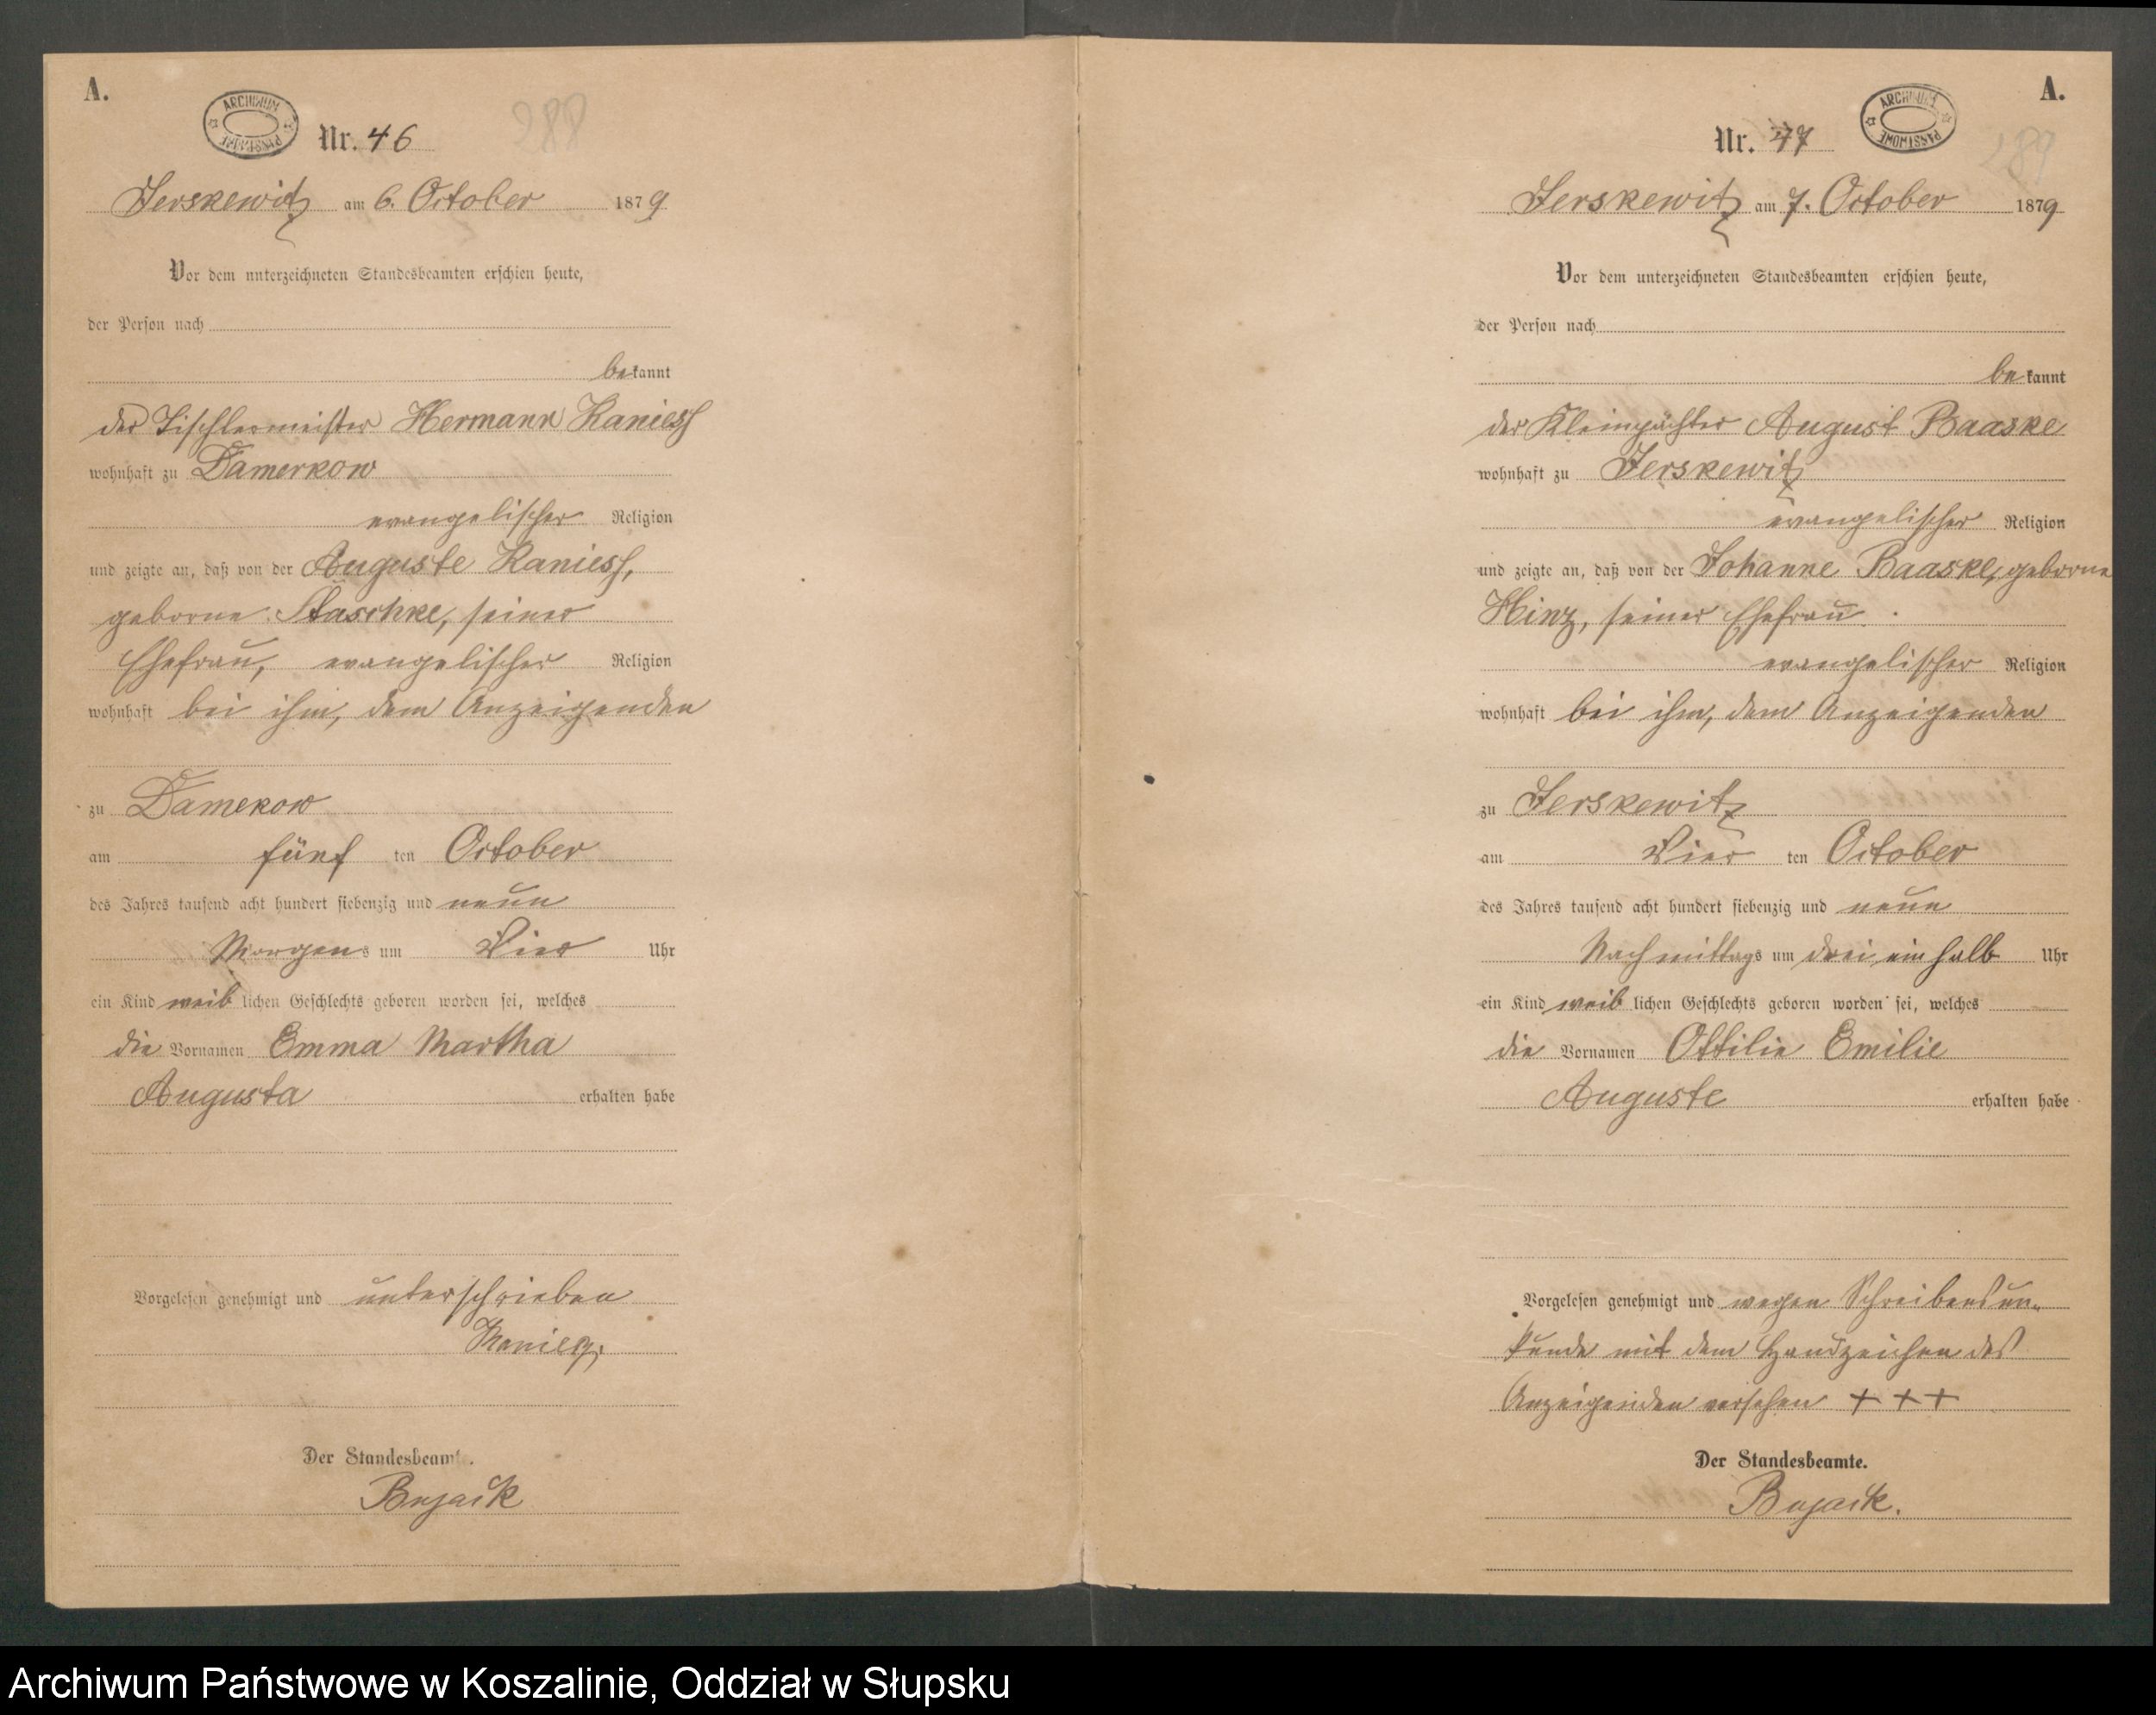 A.
ARCHIWUM PAŃSTWOWE
Nr. 46
288
Jerskewitz am 6. October 1879
Vor dem unterzeichneten Standesbeamten erschien heute,
der Person nach
bekannt
der Tischlermeister Hermann Kaniess
wohnhaft zu Damerkow
evangelischer Religion
und zeigte an, daß von der Auguste Kaniess,
geborne Staschke, seiner
Ehefrau, evangelischer Religion
wohnhaft bei ihm, dem Anzeigenden
zu Damerow
am fünf ten October
des Jahres tausend acht hundert siebenzig und neun
Morgens um Vier Uhr
ein Kind weiblichen Geschlechts geboren worden sei, welches
die Vornamen Emma Martha
Augusta erhalten habe
Vorgelesen genehmigt und unterschrieben
Der Standesbeamte.
Bujack
A.
ARCHIWUM PAŃSTWOWE
Nr. 47
289
Jerskewitz am 7. October 1879
Vor dem unterzeichneten Standesbeamten erschien heute,
der Person nach
bekannt
der Kleinpächter August Baaske
wohnhaft zu Jerskewitz
evangelischer Religion
und zeigte an, daß von der Johanne Baaske, geborne
Hinz, seiner Ehefrau
evangelischer Religion
wohnhaft bei ihm, dem Anzeigenden
zu Jerskewitz
am Vier ten October
des Jahres tausend acht hundert siebenzig und neun
Nachmittags um drei ein halb Uhr
ein Kind weiblichen Geschlechts geboren worden sei, welches
die Vornamen Ottilie Emilie
Auguste erhalten habe
Vorgelesen genehmigt und wegen Schreibensun-
kunde mit dem Handzeichen des
Anzeigenden versehen + + +
Der Standesbeamte.
Bujack.
Archiwum Państwowe w Koszalinie, Oddział w Słupsku